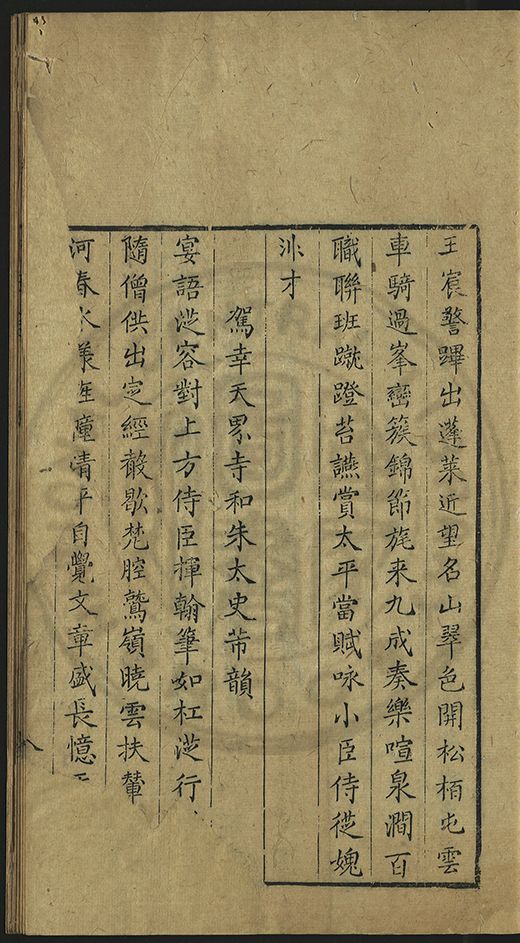 玉宸警蹕出蓬萊近望名山翠色開松栢屯雲
車騎過峯巒簇錦節旄来九成奏樂喧泉澗百
職聯班蹴蹬苔讌賞太平當賦咏小臣侍從媿
非才
駕幸天界寺和朱太史芾韻
宴語従容對上方侍臣揮翰筆如杠従行
隨僧供出定經聲歇梵腔鷲嶺曉雲扶輦
河春水漾

清平自覺文章盛長憶